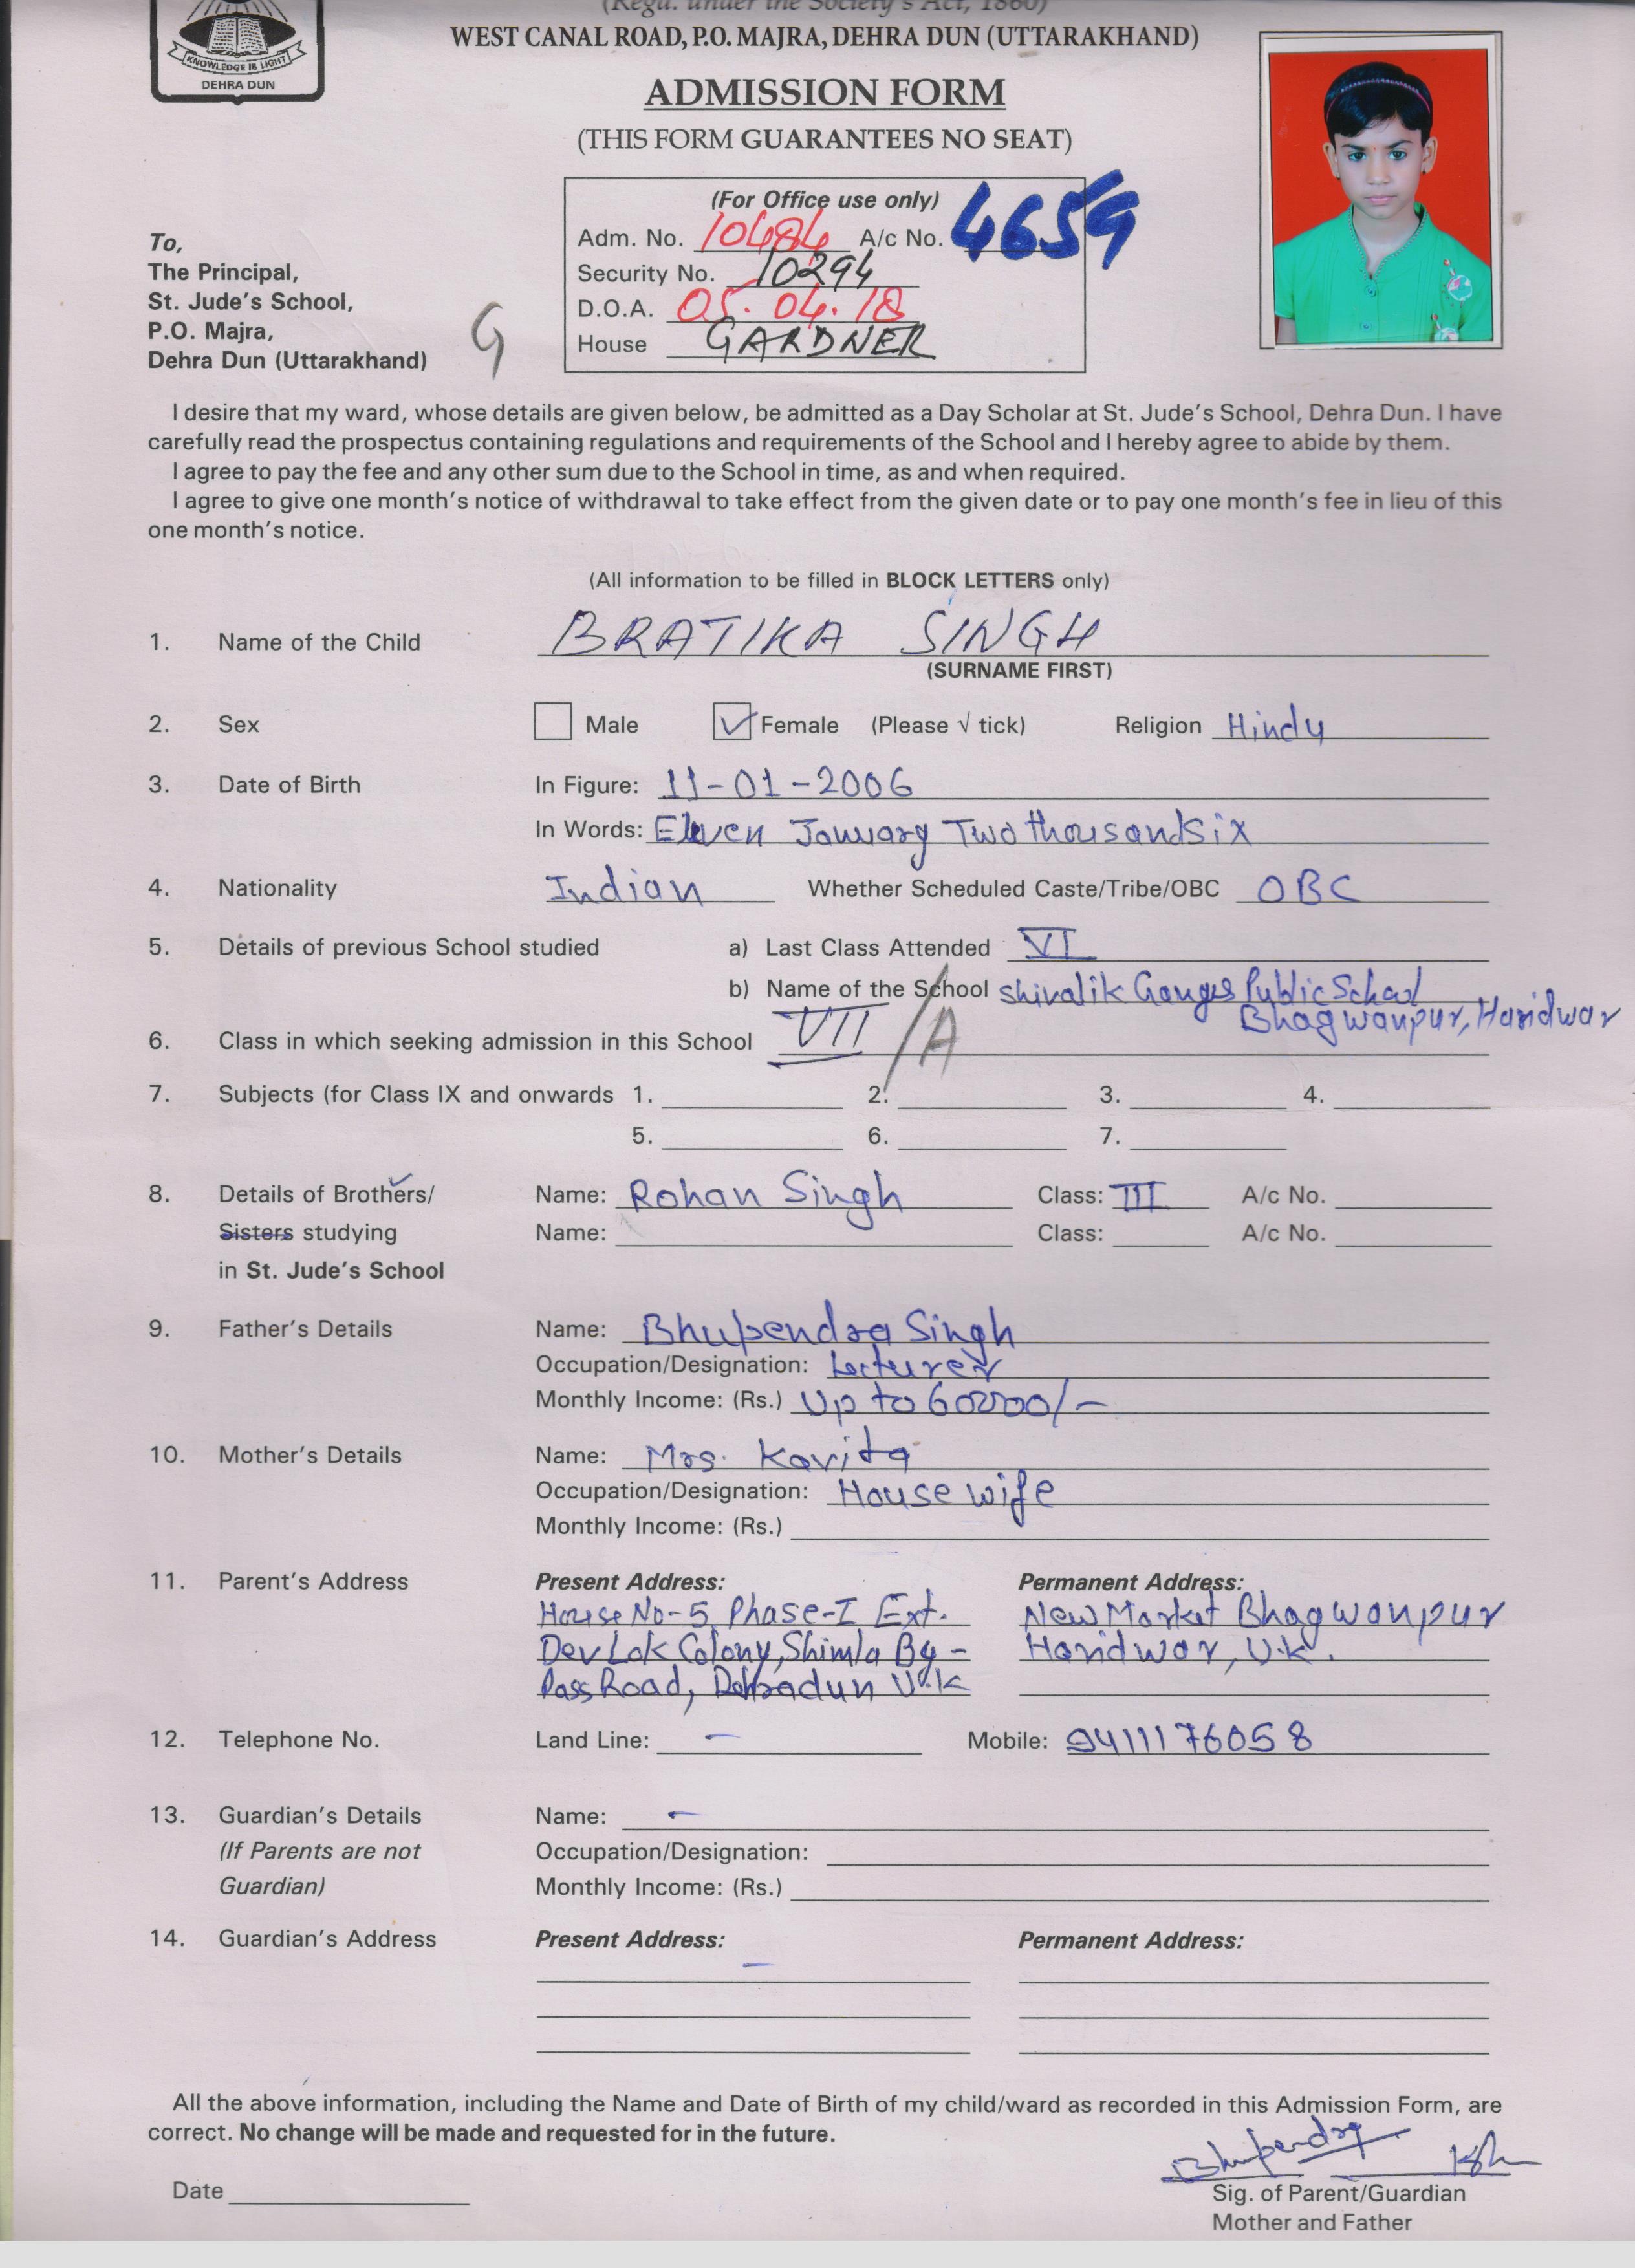 (Regd. under the Society's Act, 1860)
WEST CANAL ROAD, P.O. MAJRA, DEHRA DUN (UTTARAKHAND)
KNOWLEDGE IS LIGHT
DEHRA DUN
ADMISSION FORM
(THIS FORM GUARANTEES NO SEAT)
(For Office use only)
Adm. No. 10484 A/c No. 4659
Security No. 10294
D.O.A. 05.04.18
House GARDNER
To,
The Principal,
St. Jude's School,
P.O. Majra,
Dehra Dun (Uttarakhand)
G
I desire that my ward, whose details are given below, be admitted as a Day Scholar at St. Jude's School, Dehra Dun. I have
carefully read the prospectus containing regulations and requirements of the School and I hereby agree to abide by them.
I agree to pay the fee and any other sum due to the School in time, as and when required.
I agree to give one month's notice of withdrawal to take effect from the given date or to pay one month's fee in lieu of this
one month's notice.
(All information to be filled in BLOCK LETTERS only)
1. Name of the Child BRATIKA SINGH
(SURNAME FIRST)
2. Sex Male Female (Please √ tick) Religion Hindu
3. Date of Birth In Figure: 11-01-2006
In Words: Eleven January Two thousand six
4. Nationality Indian Whether Scheduled Caste/Tribe/OBC OBC
5. Details of previous School studied a) Last Class Attended VI
b) Name of the School Shivalik Ganges Public School
Bhagwanpur, Haridwar
6. Class in which seeking admission in this School VII /A
7. Subjects (for Class IX and onwards 1. 2. 3. 4.
5. 6. 7.
8. Details of Brothers/ Name: Rohan Singh Class: III A/c No.
Sisters studying Name: Class: A/c No.
in St. Jude's School
9. Father's Details Name: Bhupendra Singh
Occupation/Designation: Lecturer
Monthly Income: (Rs.) Up to 60000/-
10. Mother's Details Name: Mrs. Kavita
Occupation/Designation: House wife
Monthly Income: (Rs.)
11. Parent's Address Present Address: Permanent Address:
House No-5 Phase-I Ext. New Market Bhagwanpur
Dev Lok Colony, Shimla By- Haridwar, U.K.
Pass Road, Dehradun U.K
12. Telephone No. Land Line: - Mobile: 9411176058
13. Guardian's Details Name: -
(If Parents are not Occupation/Designation:
Guardian) Monthly Income: (Rs.)
14. Guardian's Address Present Address: Permanent Address:
-
All the above information, including the Name and Date of Birth of my child/ward as recorded in this Admission Form, are
correct. No change will be made and requested for in the future.
Bhupendra
Date
Sig. of Parent/Guardian
Mother and Father